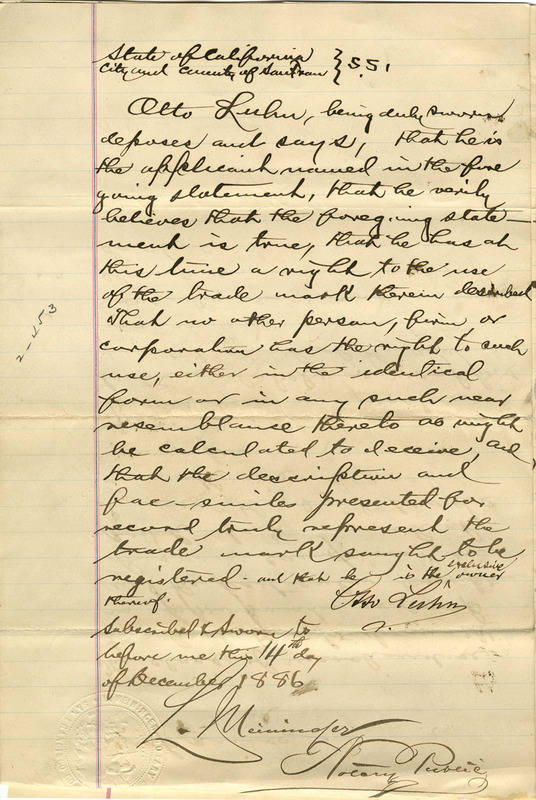 State of California } SS
City and County of San Fran }
Otto Luhn, being duly sworn
deposes and says, that he is
the applicant named in the fore
going statement, that he verily
believes that the foregoing state-
ment is true, that he has at
this time a right to the use
of the trade mark therein described
That no other person, firm, or
corporation has the right to such
use, either in the identical
form or in any such near
resemblance thereto as might
be calculated to deceive, and
that the description and
fac-similes presented for
record truly represent the
trade mark sought to be
registered - and that he is the exclusive owner
thereof.
Otto Luhn
Subscribed & Sworn to
before me this 14th day
of December 1886
L Meininger
Notary Public
2-453